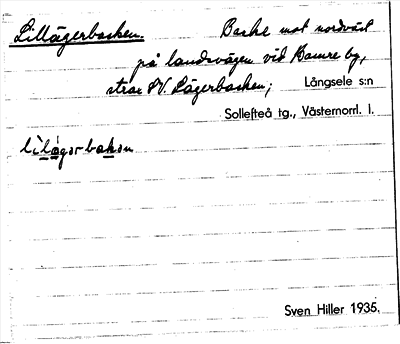 Lillägerbacken. Backe mot nordväst
på landsvägen vid Hamre by,
strax SV. Lägerbacken; Långsele s:n
Sollefteå tg., Västernorrl. l.
lìlägorbakan
Sven Hiller 1935.